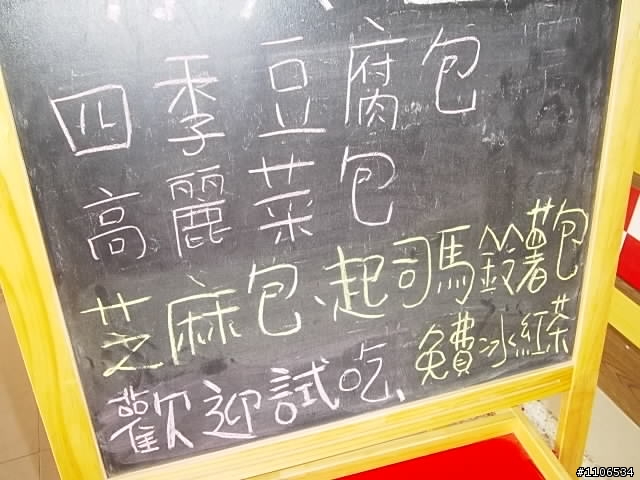 四季豆腐包
高麗菜包
芝麻包、起司馬鈴薯包
歡迎試吃、免費冰紅茶
#1106534